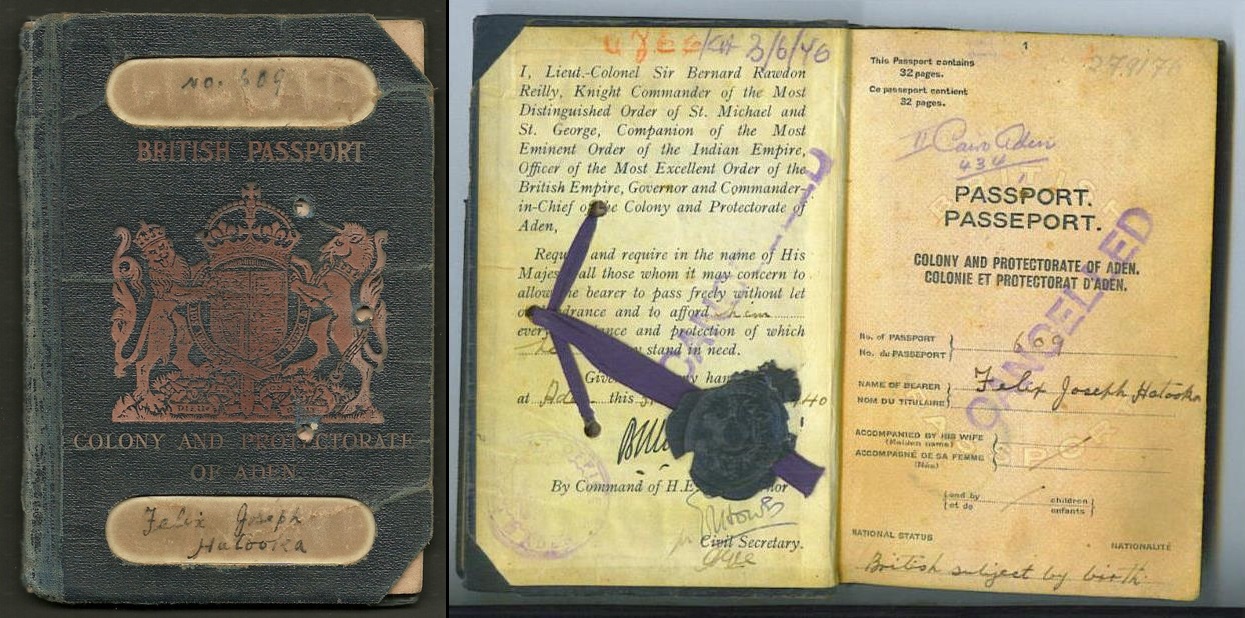 no. 609
BRITISH PASSPORT
COLONY AND PROTECTORATE
OF ADEN
Felix Joseph
Hatooka
3/6/46
I, Lieut.-Colonel Sir Bernard Rawdon
Reilly, Knight Commander of the Most
Distinguished Order of St. Michael and
St. George, Companion of the Most
Eminent Order of the Indian Empire,
Officer of the Most Excellent Order of the
British Empire, Governor and Commander-
in-Chief of the Colony and Protectorate of
Aden,
Requ and require in the name of His
Majes all those whom it may concern to
allow the bearer to pass freely without let
or hindrance and to afford him
every assistance and protection of which
he may stand in need.
Given my han
at Aden this 40
By Command of H.E. nor
Civil Secretary.
CANC
1
This Passport contains
32 pages.
Ce passeport contient
32 pages.
II Cairo Aden
434
PASSPORT.
PASSEPORT.
COLONY AND PROTECTORATE OF ADEN.
COLONIE ET PROTECTORAT D'ADEN.
CANCELLED
No. of PASSPORT
No. du PASSEPORT
609
NAME OF BEARER
NOM DU TITULAIRE
Felix Joseph Hatooka
ACCOMPANIED BY HIS WIFE
(Maiden name)
ACCOMPAGNÉ DE SA FEMME
(Née)
and by children
et de enfants
NATIONAL STATUS NATIONALITÉ
British subject by birth